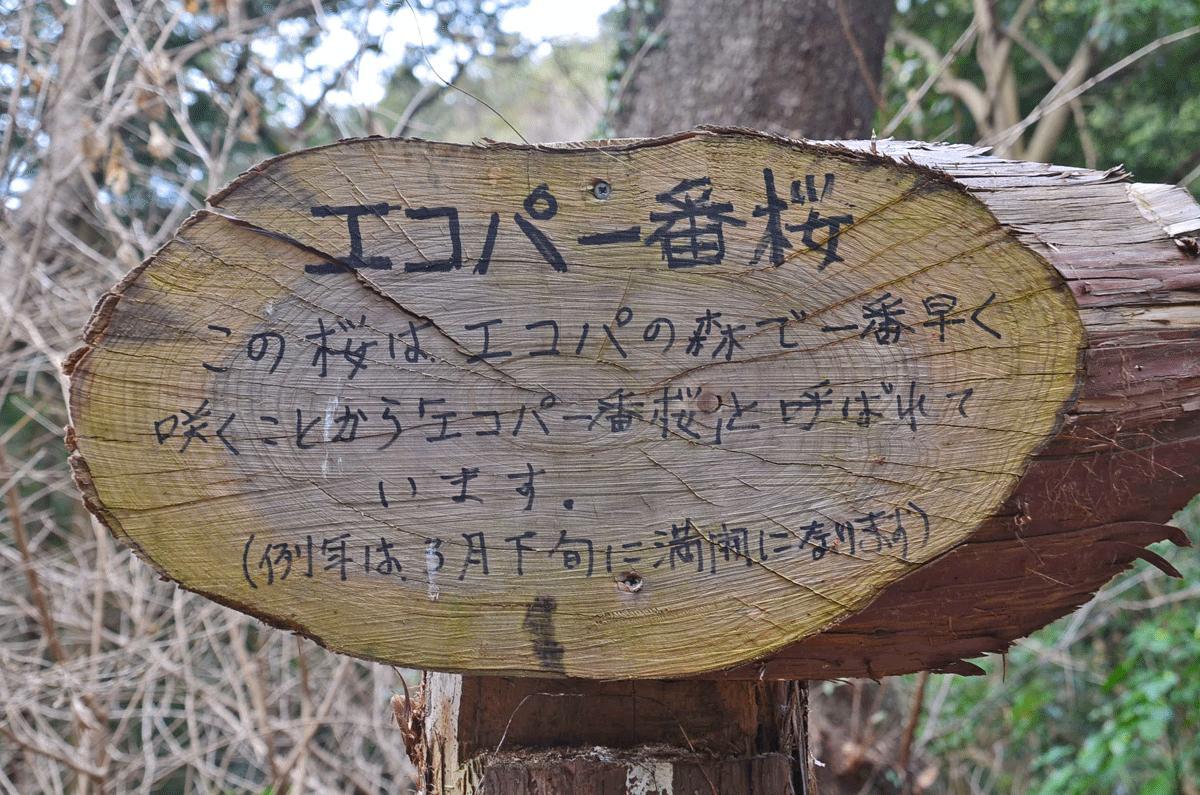 エコパ一番桜
この桜は、エコパの森で一番早く
咲くことから「エコパ一番桜」と呼ばれて
います。
(例年は、3月下旬に満開になります)